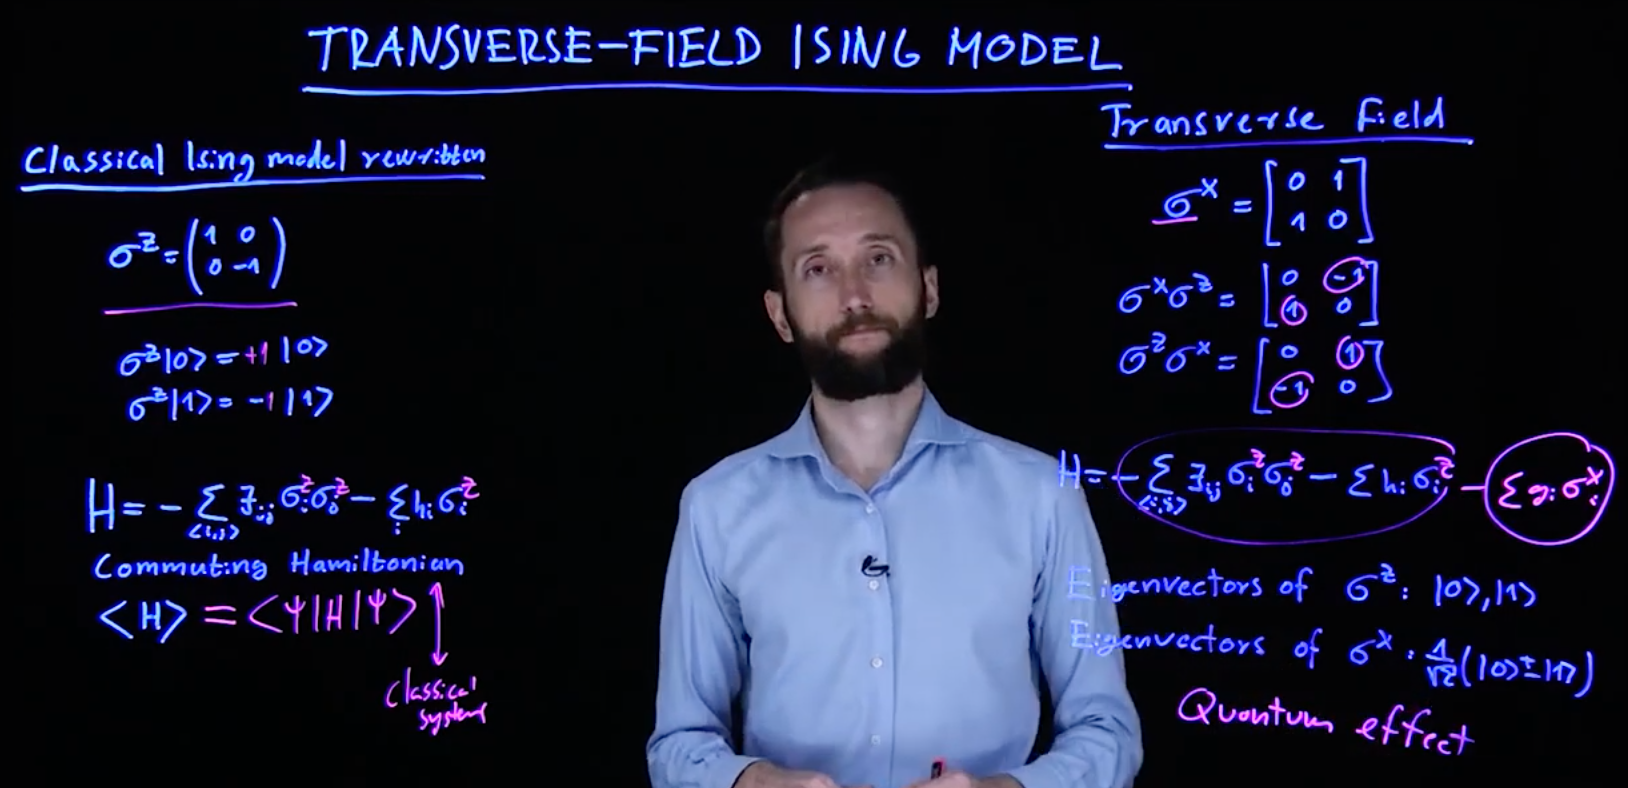 TRANSVERSE-FIELD ISING MODEL
Classical Ising model rewritten
σ^z = (1 0
0 -1)
σ^z|0> = +1 |0>
σ^z|1> = -1 |1>
H = - Σ_<i,j> J_ij σ_i^z σ_j^z - Σ_i h_i σ_i^z
Commuting Hamiltonian
<H> = <Ψ|H|Ψ>
Classical
system
Transverse Field
σ^x = [0 1
1 0]
σ^x σ^z = [0 -1
1 0]
σ^z σ^x = [0 1
-1 0]
H = - Σ_<i,j> J_ij σ_i^z σ_j^z - Σ h_i σ_i^z - Σ g_i σ_i^x
Eigenvectors of σ^z : |0>, |1>
Eigenvectors of σ^x : 1/√2 (|0> ± |1>)
Quantum effect